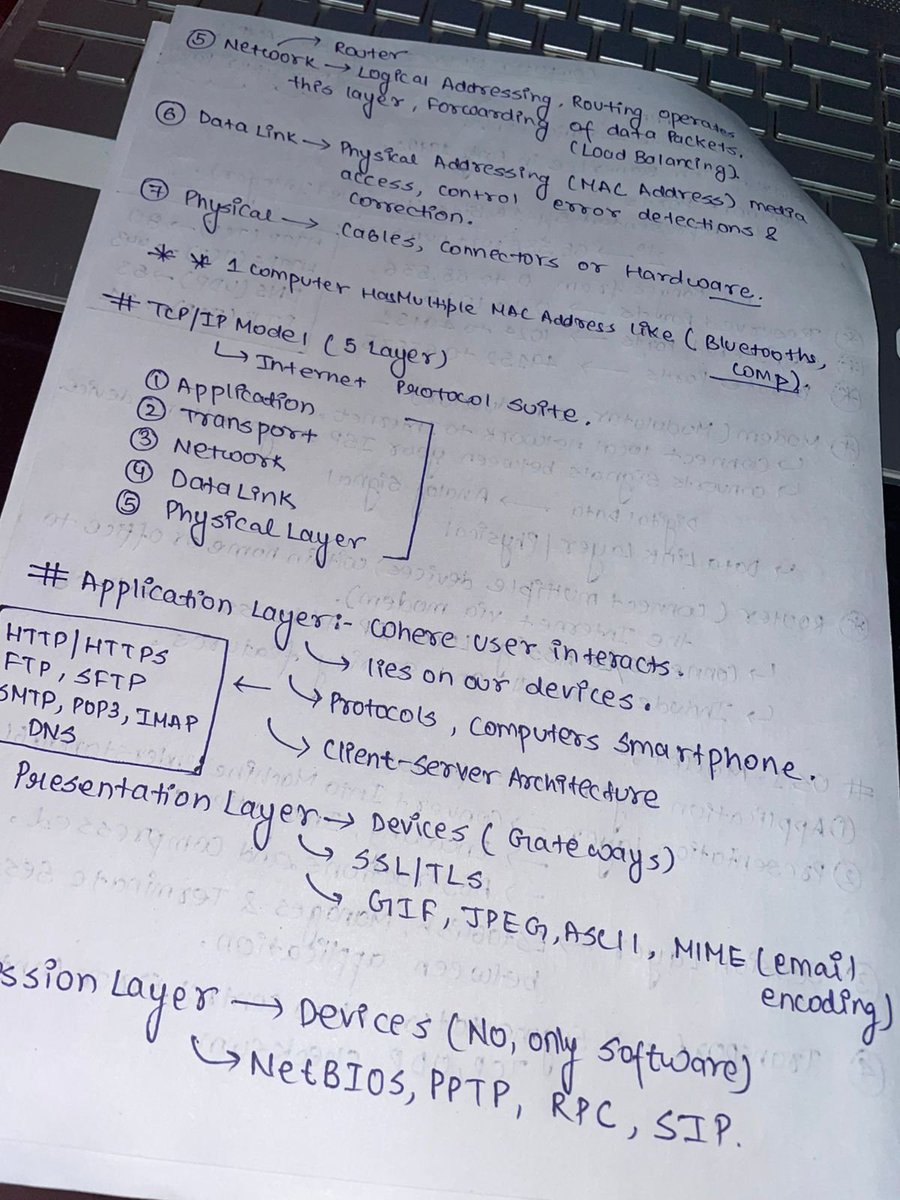 ⑤ Network → Router
→ Logical Addressing, Routing operates
this layer, Forwarding of data Packets.
(Load Balancing).
⑥ Data Link → Physical Addressing (MAC Address) media
access, control error detections &
correction.
⑦ Physical → cables, connectors or Hardware.
* * 1 computer HasMultiple MAC Address like (Bluetooths,
comp).
# TCP/IP Model (5 Layer)
↳ Internet Protocol Suite.
① Application
② Transport
③ Network
④ Data Link
⑤ Physical Layer
# Application Layer:- where user interacts.
↳ lies on our devices.
↳ Protocols, Computers Smartphone.
↳ Client-Server Architecture
HTTP/HTTPS
FTP, SFTP
SMTP, POP3, IMAP
DNS
Presentation Layer → Devices (Gateways)
↳ SSL/TLS
↳ GIF, JPEG, ASCII, MIME (email
encoding)
ssion Layer → Devices (No, only software)
↳ NetBIOS, PPTP, RPC, SIP.